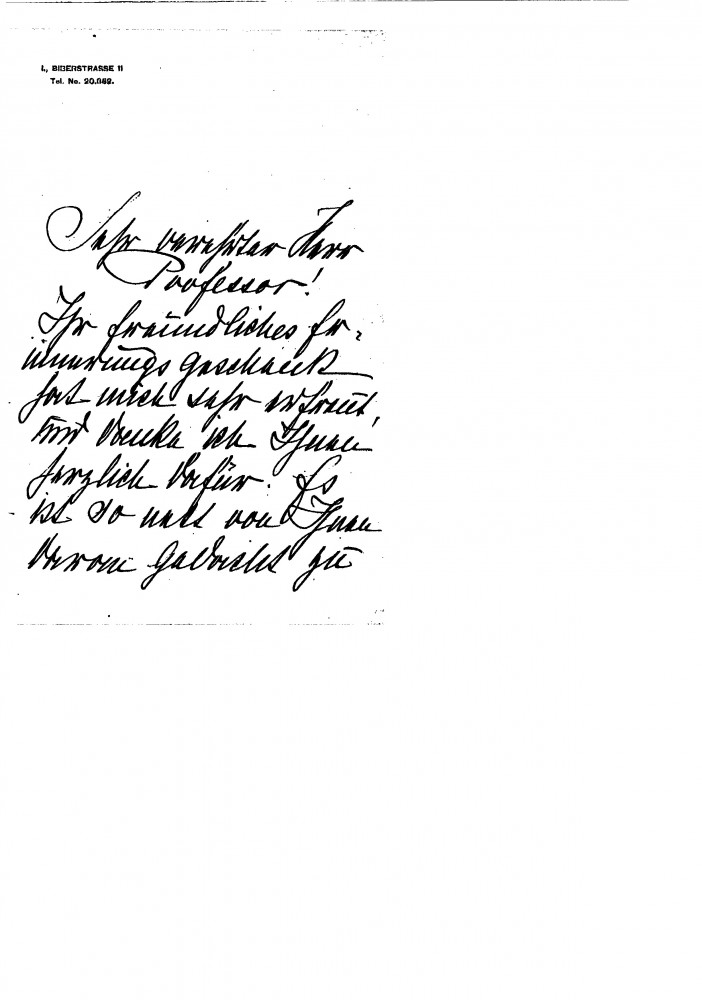 I., BIBERSTRASSE 11
Tel. No. 20.082.
Sehr verehrter Herr
Professor!
Ihr freundliches Er-
innerungsgeschenk
hat mich sehr erfreut,
und danke ich Ihnen
herzlich dafür. Es
ist so nett von Ihnen
daran gedacht zu